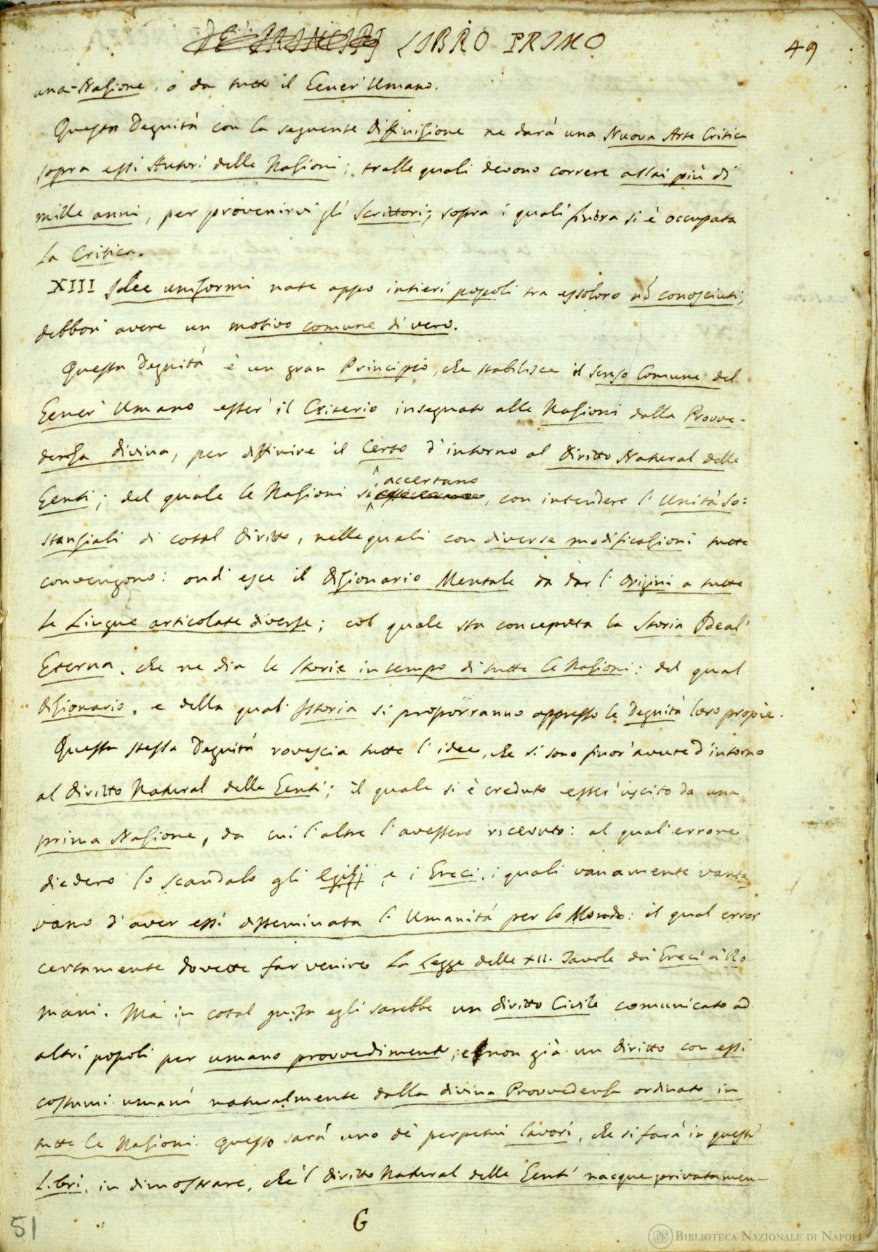 DE' PRINCIPJ LIBRO PRIMO 49
una Nazione, o da tutto il Gener' Umano.
Questa Degnità con la seguente diffinizione ne darà una Nuova Arte Critica
sopra essi Autori delle Nazioni; tralle quali devono correre assai più di
mille anni, per provenirvi gli Scrittori, sopra i quali finora si è occupata
la Critica.
XIII Idee uniformi nate appo intieri popoli tra essoloro nõ conosciuti,
debbon' avere un motivo comune di vero.
Questa Degnità è un gran Principio, che stabilisce il Senso Comune del
Gener' Umano esser' il Criterio insegnato alle Nazioni dalla Provve-
denza divina, per diffinire il Certo d'intorno al diritto Natural delle
accertano
Genti; del quale le Nazioni si, con intendere l'Unità So:
stanziali di cotal diritto, nelle quali con diverse modificazioni tutte
convengono: ond' esce il dizionario Mentale da dar l'Origini a tutte
le Lingue articolate diverse; col quale sta conceputa la Storia Ideal'
Eterna, che ne dia le storie in tempo di tutte le Nazioni: del qual
dizionario, e della qual' Istoria si proporranno appresso le Degnità loro propie.
Questa stessa Degnità rovescia tutte l'idee, che si sono finor' avute d'intorno
al diritto Natural delle Genti; il quale si è creduto esser' uscito da una
prima Nazione, da cui l'altre l'avessero ricevuto: al qual' errore
diedero lo scandalo gli Egizj, e i Greci, i quali vanamente vanta
vano d'aver essi disseminata l'Umanità per lo Mondo: il qual error
certamente dovette far venire la Legge delle XII. Tavole da' Greci a' Ro
mani. Ma in cotal guisa egli sarebbe un diritto Civile comunicato ad
altri popoli per umano provvedimento; e non già un diritto con essi
costumi umani naturalmente dalla divina Provvedenza ordinato in
tutte le Nazioni. Questo sarà uno de' perpetui lavori, che si farà in questi
Libri, in dimostrare, che'l diritto Natural delle Genti nacque privatamen-
G
51
BIBLIOTECA NAZIONALE DI NAPOLI